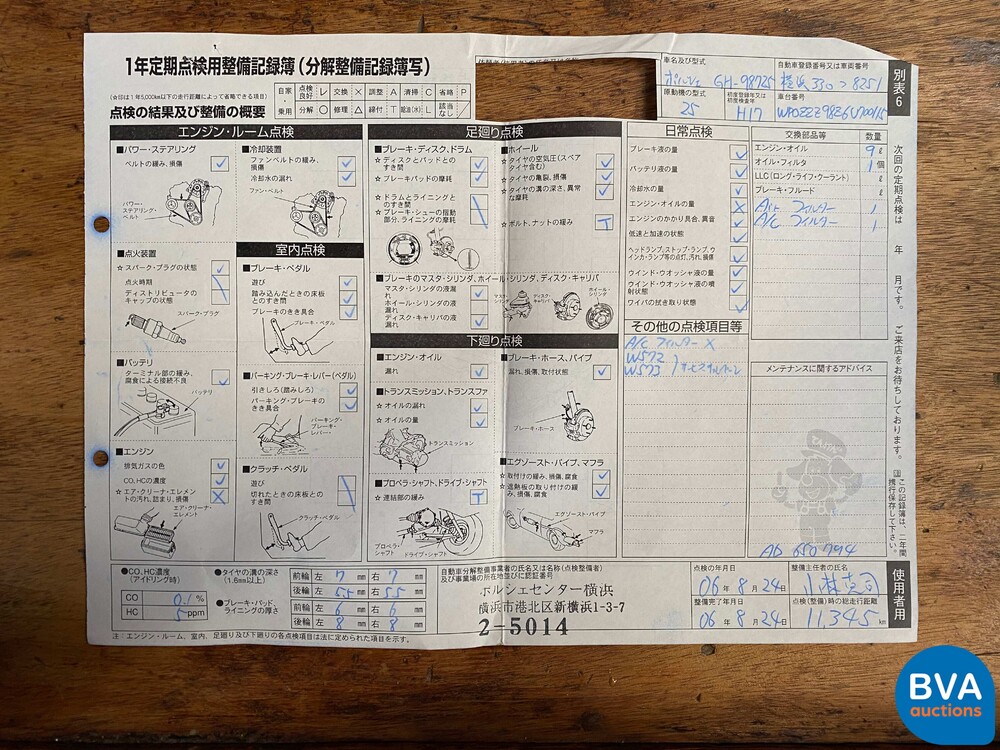 1年定期点検用整備記録簿(分解整備記録簿写)
(☆印は1年5,000km以下の走行距離によって省略できる項目)
点検の結果及び整備の概要
自家・乗用
点検良好 レ 交換 × 調整 A 清掃 C 省略 P
分解 ○ 修理 △ 締付 T 給油(水) L 該当なし /
車名及び型式
ポルシェ GH-98725
自動車登録番号又は車両番号
横浜 330 つ 8251
原動機の型式
25
初度登録年又は初度検査年
H17
車台番号
別表6
エンジン・ルーム点検
■パワー・ステアリング
ベルトの緩み、損傷
パワー・ステアリング・ベルト
■冷却装置
ファンベルトの緩み、損傷
冷却水の漏れ
ファン・ベルト
■点火装置
☆スパーク・プラグの状態
点火時期
ディストリビュータのキャップの状態
スパーク・プラグ
■バッテリ
ターミナル部の緩み、腐食による接続不良
バッテリ
■エンジン
排気ガスの色
CO,HCの濃度
☆エア・クリーナ・エレメントの汚れ、詰まり、損傷
エア・クリーナ・エレメント
室内点検
■ブレーキ・ペダル
遊び
踏み込んだときの床板とのすき間
ブレーキのきき具合
ブレーキ・ペダル
■パーキング・ブレーキ・レバー(ペダル)
引きしろ(踏みしろ)
パーキング・ブレーキのきき具合
パーキング・ブレーキ・レバー
■クラッチ・ペダル
遊び
切れたときの床板とのすき間
クラッチ・ペダル
足廻り点検
■ブレーキ・ディスク、ドラム
☆ディスクとパッドとのすき間
☆ブレーキパッドの摩耗
☆ドラムとライニングとのすき間
☆ブレーキ・シューの摺動部分、ライニングの摩耗
■ホイール
☆タイヤの空気圧(スペアタイヤ含む)
☆タイヤの亀裂、損傷
☆タイヤの溝の深さ、異常な摩耗
☆ボルト、ナットの緩み
■ブレーキのマスタ・シリンダ、ホイール・シリンダ、ディスク・キャリパ
マスタ・シリンダの液漏れ
ホイール・シリンダの液漏れ
ディスク・キャリパの液漏れ
ディスク・キャリパ
ホイール・シリンダ
下廻り点検
■エンジン・オイル
漏れ
■トランスミッション、トランスファ
☆オイルの漏れ
☆オイルの量
トランスミッション
■プロペラ・シャフト、ドライブ・シャフト
☆連結部の緩み
プロペラ・シャフト
ドライブ・シャフト
■ブレーキ・ホース、パイプ
漏れ、損傷、取付状態
ブレーキ・ホース
■エグゾースト・パイプ、マフラ
☆取付けの緩み、損傷、腐食
☆遮熱板の取り付けの緩み、損傷、腐食
エグゾースト・パイプ
マフラ
日常点検
ブレーキ液の量
バッテリ液の量
冷却水の量
エンジン・オイルの量
エンジンのかかり具合、異音
低速と加速の状態
ヘッドランプ、ストップ・ランプ、ウインカ・ランプ等の点灯、汚れ、損傷
ウインド・ウオッシャ液の量
ウインド・ウオッシャ液の噴射状態
ワイパの拭き取り状態
その他の点検項目等
A/C フィルター ×
W572
W573
交換部品等 数量
エンジン・オイル 9 ℓ
オイル・フィルタ 1 個
LLC(ロング・ライフ・クーラント) ℓ
ブレーキ・フルード ℓ
Air フィルター 1
A/C フィルター 1
メンテナンスに関するアドバイス
AD 650794
次回の定期点検は 年 月です。 ご来店をお待ちしております。
この記録簿は、二年間携行保存して下さい。
使用者用
●CO、HC濃度(アイドリング時)
CO 0.1 %
HC 5 ppm
●タイヤの溝の深さ(1.6mm以上)
前輪 左 7 mm 右 7 mm
後輪 左 5.5 mm 右 5.5 mm
●ブレーキ・パッド、ライニングの厚さ
前輪 左 6 mm 右 6 mm
後輪 左 8 mm 右 8 mm
自動車分解整備事業者の氏名又は名称(点検整備者)及び事業場の所在地並びに認証番号
ポルシェセンター横浜
横浜市港北区新横浜1-3-7
2-5014
点検の年月日
06年 8月 24日
整備完了年月日
06年 8月 24日
整備主任者の氏名
点検(整備)時の総走行距離
11,345 km
注:エンジン・ルーム、室内、足廻り及び下廻りの各点検項目は法に定められた項目を示す。
BVA
auctions